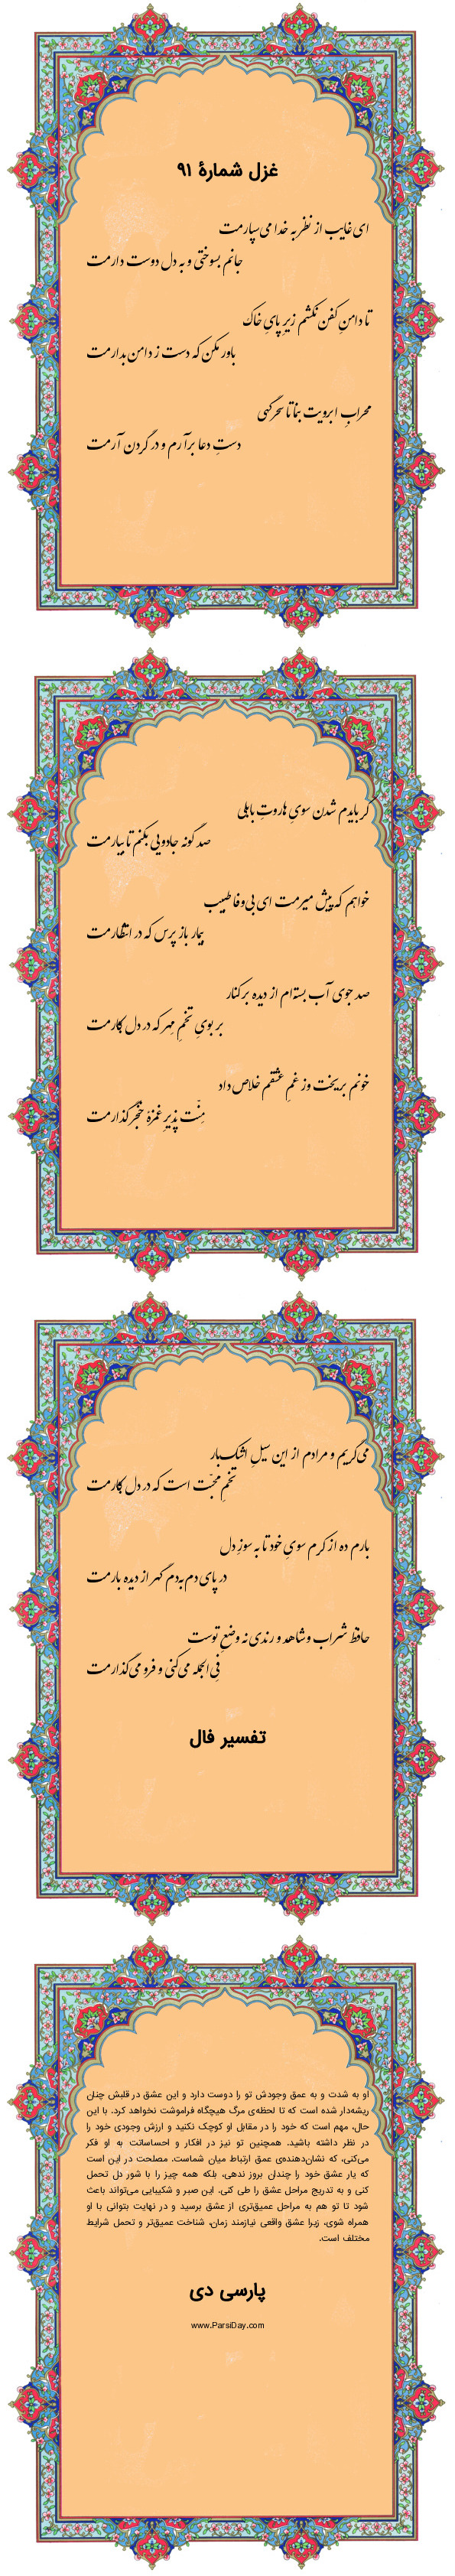 غزل شمارهٔ ۹۱
ای غایب از نظر به خدا می‌سپارمت
جانم بسوختی و به دل دوست دارمت
تا دامنِ کفن نکشم زیرِ پایِ خاک
باور مکن که دست ز دامن بدارمت
محرابِ ابرویت بنما تا سحرگهی
دستِ دعا برآرم و در گردن آرمت
گر بایدم شدن سویِ هاروتِ بابلی
صد گونه جادویی بکنم تا بیارمت
خواهم که پیش میرمت ای بی‌وفا طبیب
بیمار باز پرس که در انتظارمت
صد جوی آب بسته‌ام از دیده بر کنار
بر بویِ تخمِ مهر که در دل بکارمت
خونم بریخت وز غمِ عشقم خلاص داد
مِنَّت پذیرِ غمزهٔ خنجر گذارمت
می‌گریم و مرادم از این سیلِ اشک‌بار
تخمِ محبّت است که در دل بکارمت
بارم ده از کرم سویِ خود تا به سوزِ دل
در پای دم‌به‌دم گهر از دیده بارمت
حافظ شراب و شاهد و رندی نه وضعِ توست
فی‌الجمله می‌کنی و فرو می‌گذارمت
تفسیر فال
او به شدت و به عمق وجودش تو را دوست دارد و این عشق در قلبش چنان
ریشه‌دار شده است که تا لحظه‌ی مرگ هیچگاه فراموشت نخواهد کرد. با این
حال، مهم است که خود را در مقابل او کوچک نکنید و ارزش وجودی خود را
در نظر داشته باشید. همچنین تو نیز در افکار و احساساتت به او فکر
می‌کنی، که نشان‌دهنده‌ی عمق ارتباط میان شماست. مصلحت در این است
که یار عشق خود را چندان بروز ندهی، بلکه همه چیز را با شور دل تحمل
کنی و به تدریج مراحل عشق را طی کنی. این صبر و شکیبایی می‌تواند باعث
شود تا تو هم به مراحل عمیق‌تری از عشق برسید و در نهایت بتوانی با او
همراه شوی، زیرا عشق واقعی نیازمند زمان، شناخت عمیق‌تر و تحمل شرایط
مختلف است.
پارسی دی
www.ParsiDay.com